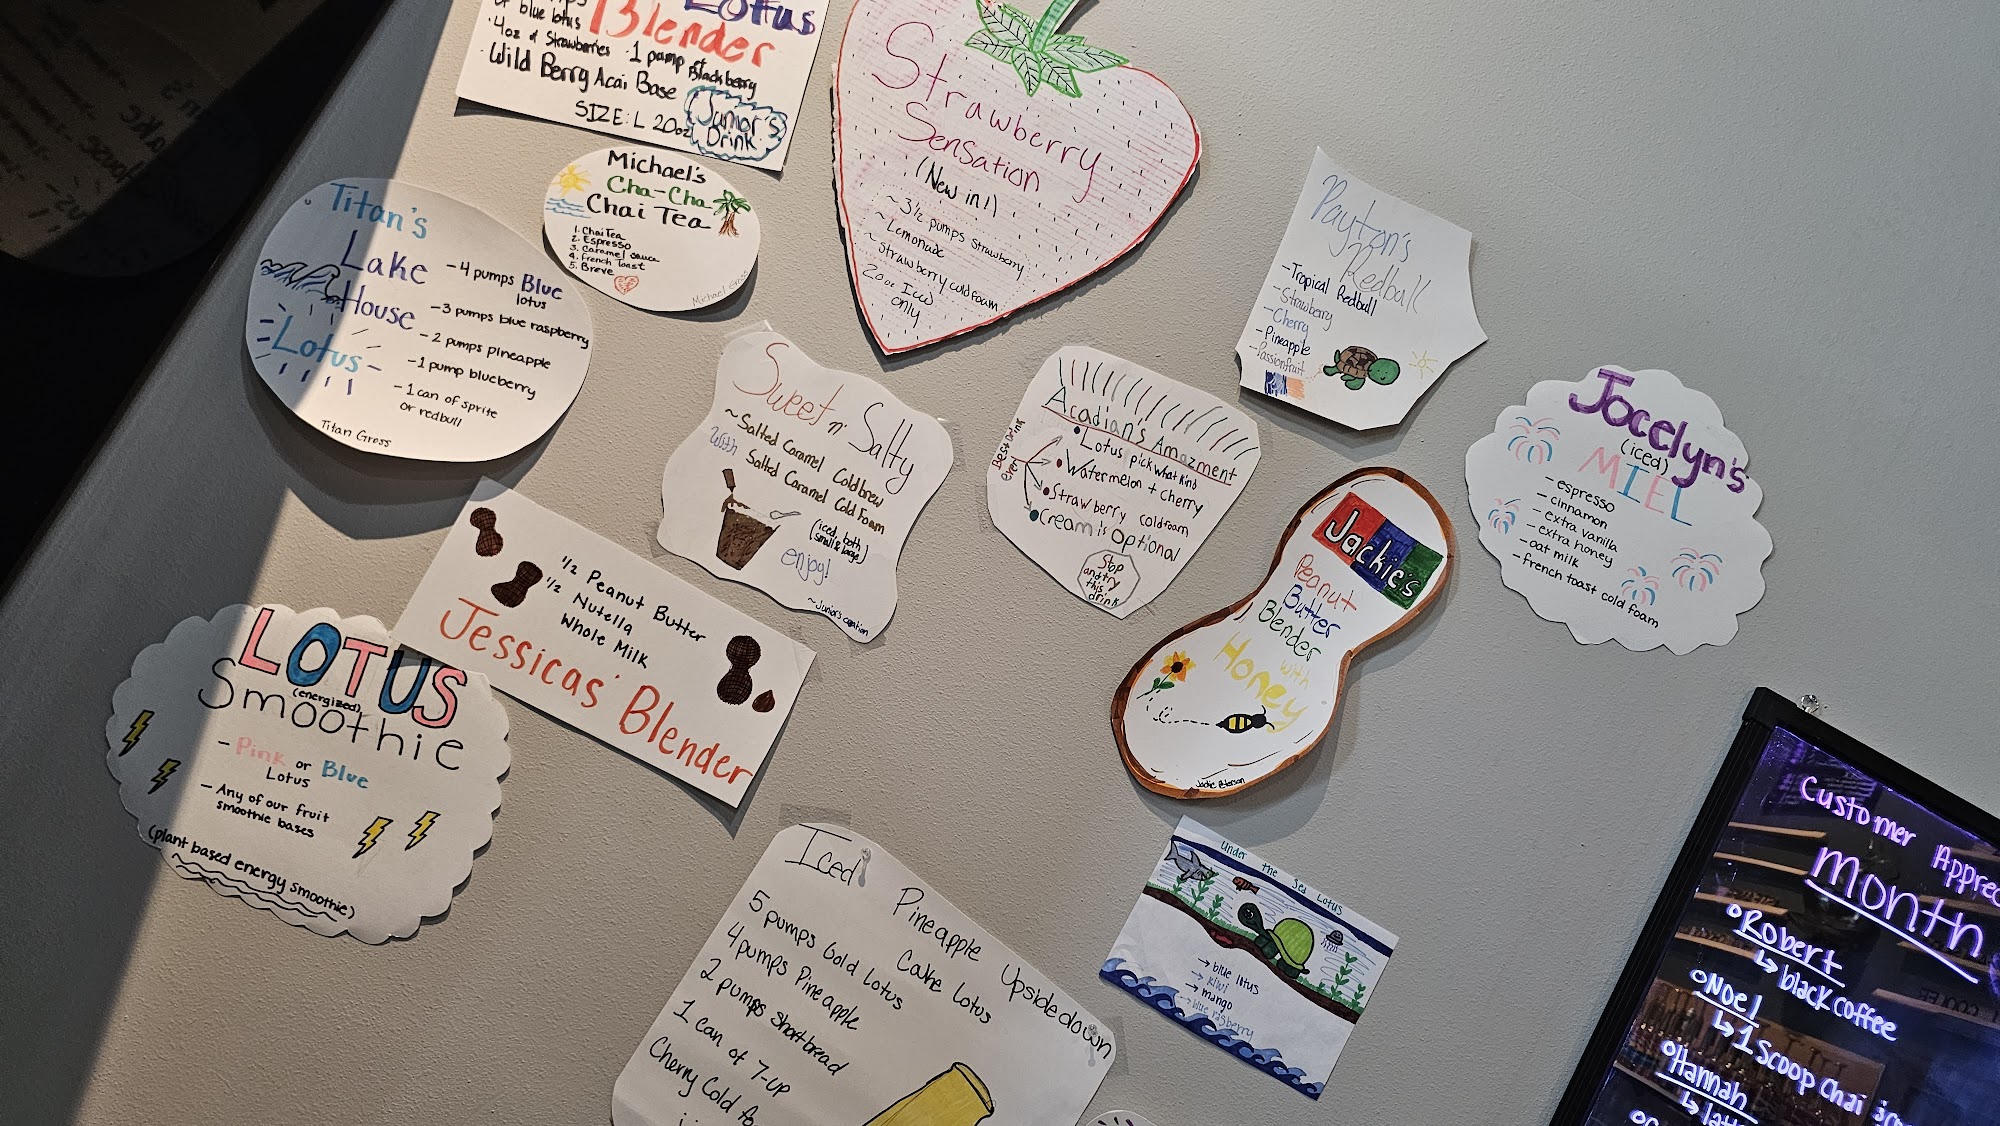 Lotus
of blue lotus
Blender
·4oz of Strawberries ·1 pump of Blackberry
·Wild Berry Acai Base
SIZE: L 20oz
Junior's
Drink
Michael's
Cha-Cha
Chai Tea
1. Chai Tea
2. Espresso
3. Caramel sauce
4. French Toast
5. Breve
Michael Gross
Strawberry
Sensation
(New in!)
~ 3½ pumps strawberry
~ Lemonade
~ Strawberry cold foam
20oz Iced
only
Payton's
Redbull
-Tropical Redbull
-Strawberry
-Cherry
-Pineapple
-Passionfruit
Titan's
Lake
House
-Lotus-
-4 pumps Blue
lotus
-3 pumps blue raspberry
-2 pumps pineapple
-1 pump blueberry
-1 can of sprite
or redbull
Titan Gross
Sweet n' Salty
~Salted Caramel Coldbrew
with Salted Caramel Cold Foam
(iced, both
small & large)
enjoy!
~Junior's creation
Acadian's Amazment
Best Drink
ever
Lotus pick what kind
Watermelon + cherry
Strawberry coldfoam
Cream is Optional
Stop
and try
this
drink
Jocelyn's
(iced)
MIEL
- espresso
- cinnamon
- extra vanilla
- extra honey
- oat milk
- french toast cold foam
Jackie's
Peanut
Butter
Blender
with
Honey
Jackie Peterson
½ Peanut Butter
½ Nutella
Whole Milk
Jessicas' Blender
LOTUS
(energized)
Smoothie
- Pink or Blue
Lotus
- Any of our fruit
smoothie bases
(plant based energy smoothie)
Iced Pineapple Upsidedown
Cake Lotus
5 pumps Gold Lotus
4 pumps Pineapple
2 pumps Shortbread
1 can of 7-up
Cherry Cold
Under the Sea Lotus
→ blue lotus
→ kiwi
→ mango
→ blue rasberry
Customer Apprec
Month
Robert
↳ black coffee
Noel
↳ 1 Scoop Chai
Hannah
↳ latt